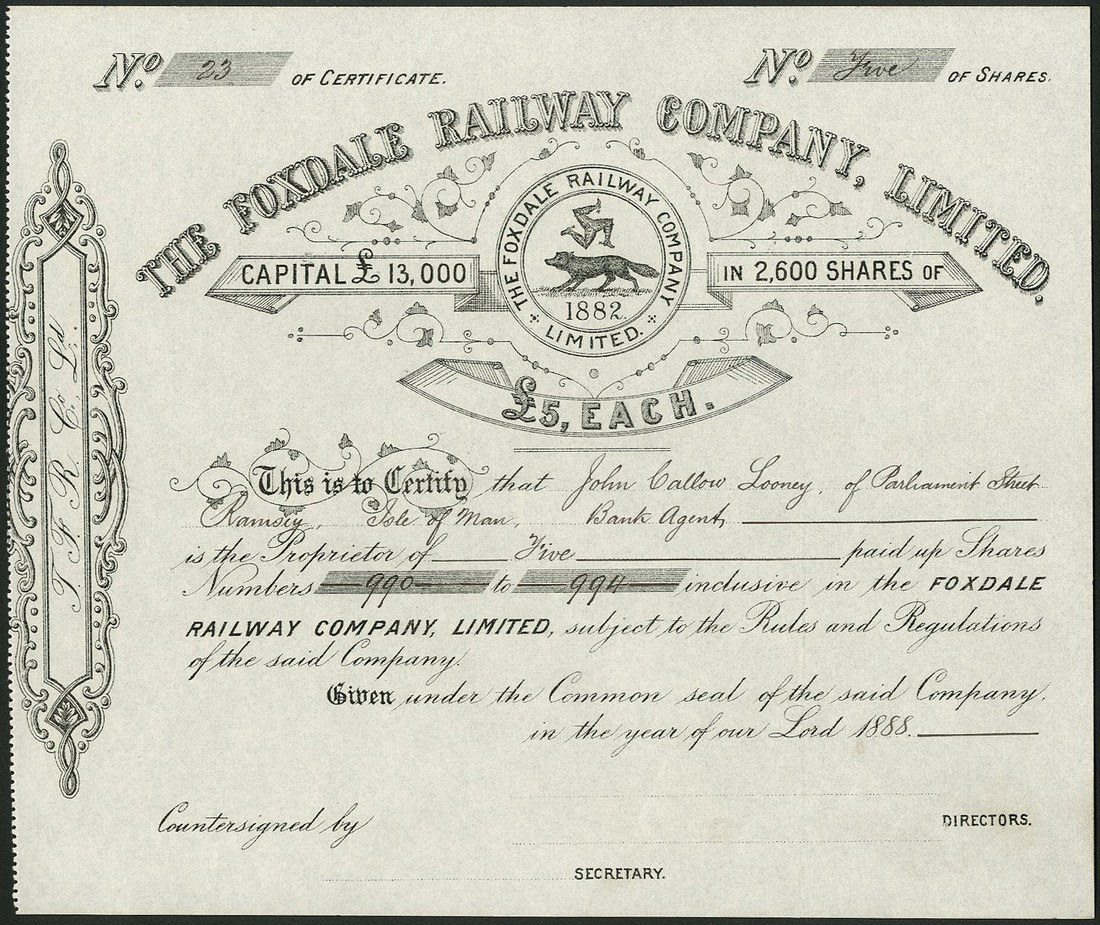 No. 23 OF CERTIFICATE. No. Five OF SHARES.
THE FOXDALE RAILWAY COMPANY, LIMITED.
CAPITAL £ 13,000 IN 2,600 SHARES OF
THE FOXDALE RAILWAY COMPANY
1882.
LIMITED.
£5, EACH.
T. F. R. Co. Ld.
This is to Certify that John Callow Looney, of Parliament Street
Ramsey, Isle of Man, Bank Agent,
is the Proprietor of Five paid up Shares
Numbers 990 to 994 inclusive in the FOXDALE
RAILWAY COMPANY, LIMITED, subject to the Rules and Regulations
of the said Company.
Given under the Common seal of the said Company.
in the year of our Lord 1888.
Countersigned by DIRECTORS.
SECRETARY.